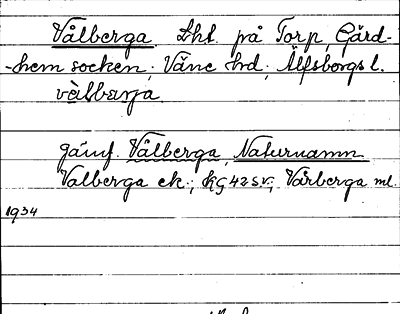 Vålberga. Lht. på Torp, Gärd-
-hem socken, Väne hrd., Älfsborgs l.
vålbærja
Jämf. Vålberga, Naturnamn
Valberga ek.; KG 42 SV, Vårberga ml.
1934